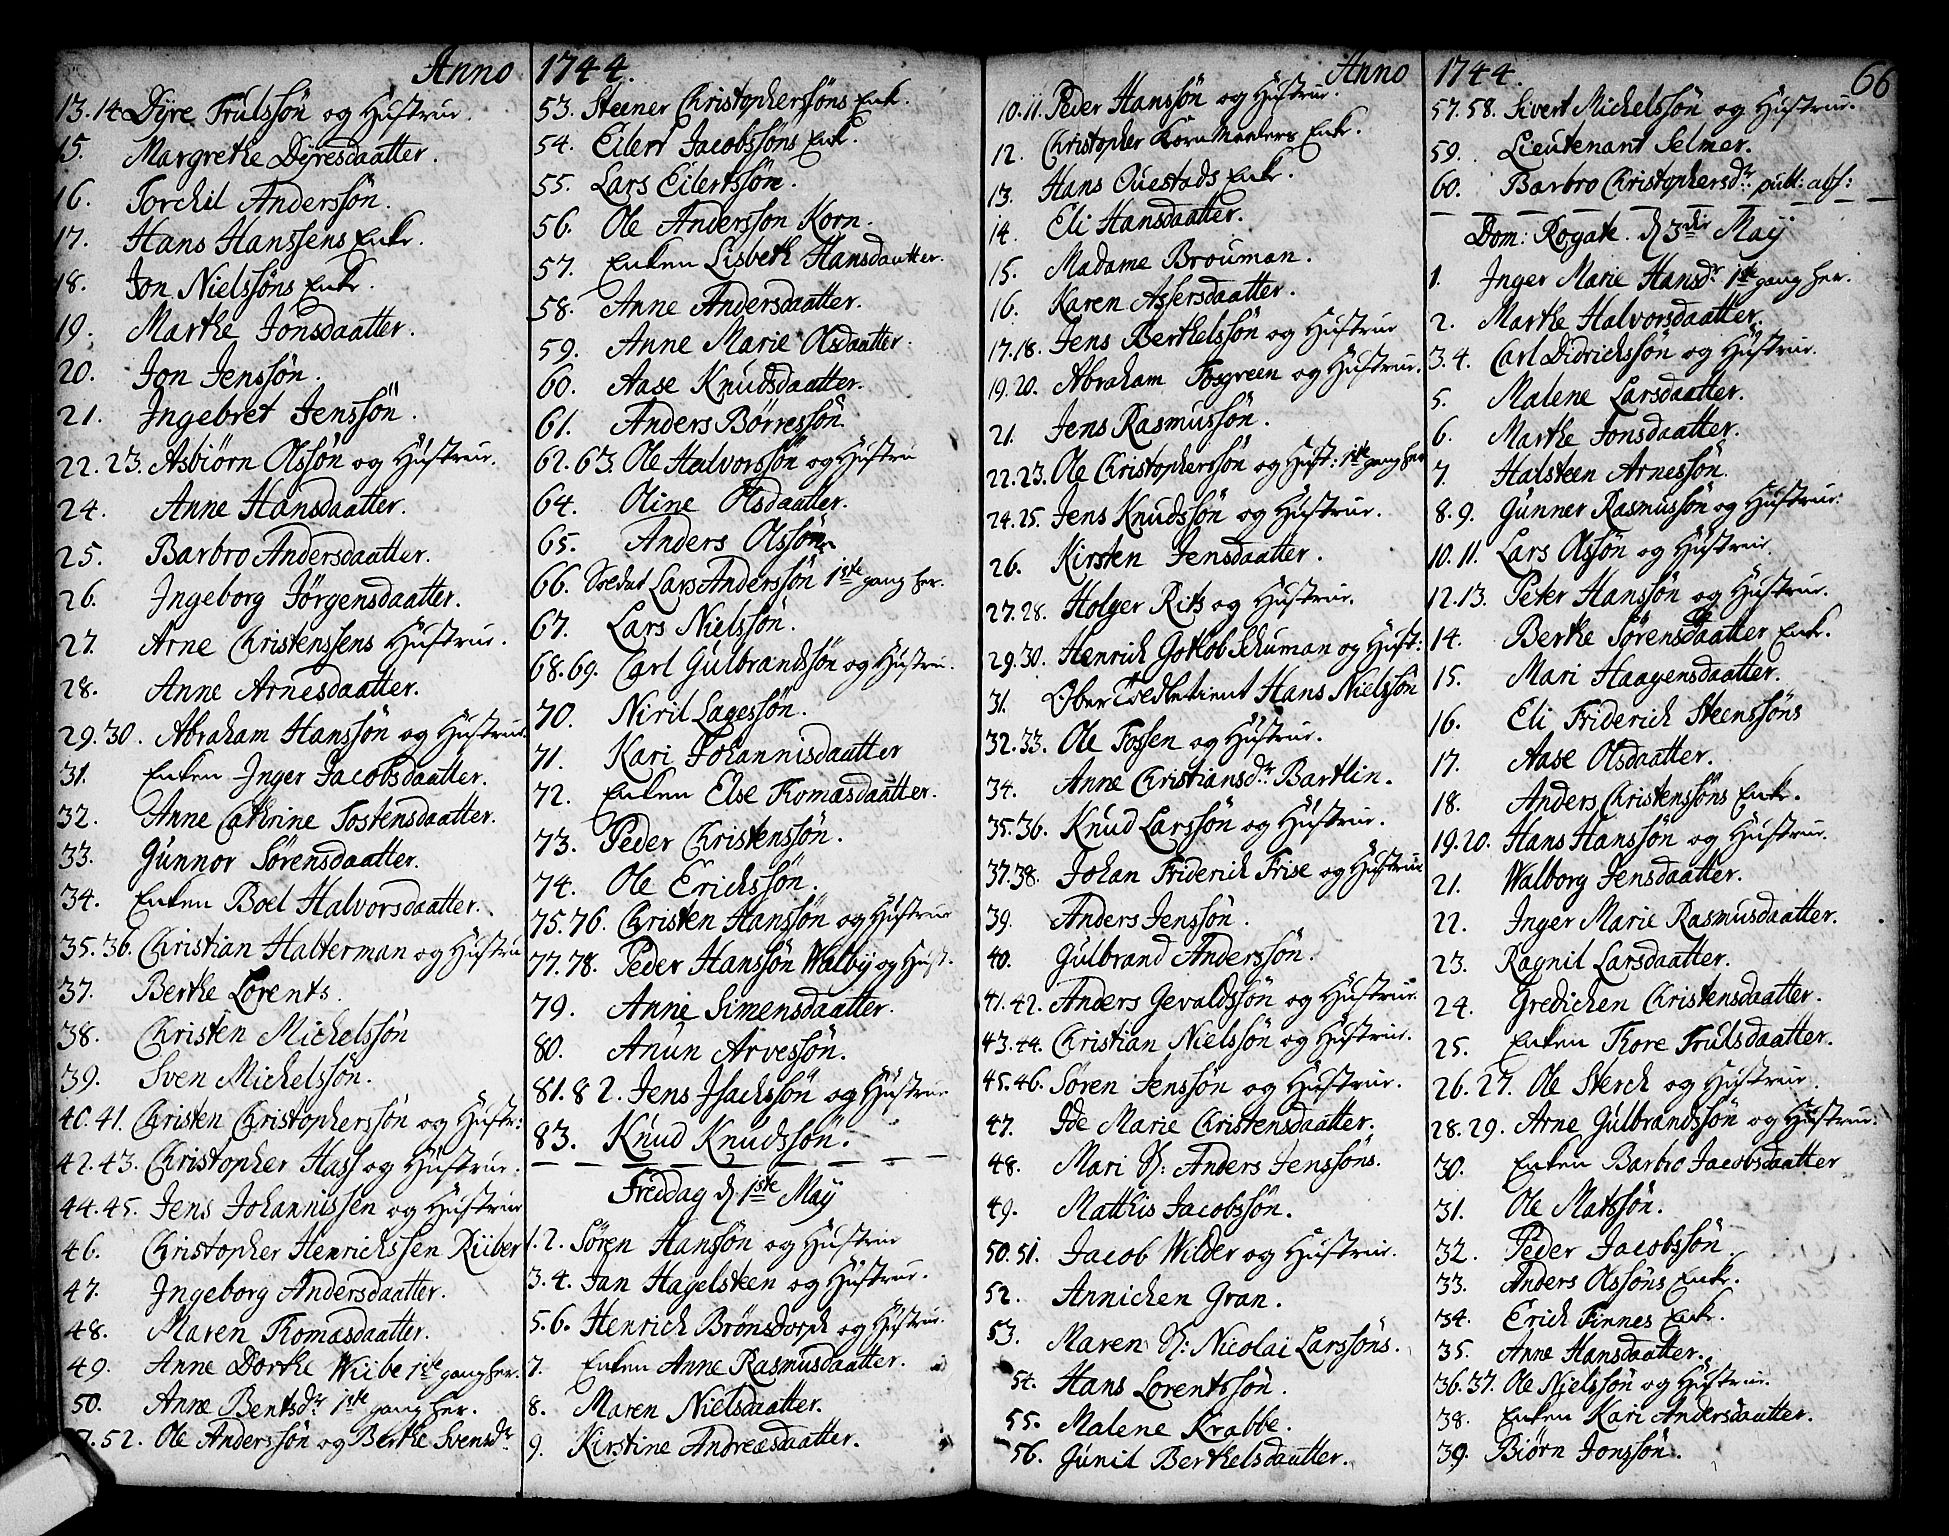 Anno 1744.
13.14 Dÿre Trulssön og Hustrue.
15. Margrethe Dÿresdaatter.
16. Torchil Anderssön.
17. Hans Hanssens Enke.
18. Jon Nielssöns Enke.
19. Marthe Jonsdaatter.
20. Jon Jenssön.
21. Ingebret Jenssön.
22.23. Asbiörn Olssön og Hustrue.
24. Anne Hansdaatter.
25. Barbro Andersdaatter.
26. Ingeborg Jörgensdaatter.
27. Arne Christenssens Hustrue.
28. Anne Arnesdaatter.
29.30. Abraham Hanssön og Hustrue
31. Enken Inger Jacobsdaatter.
32. Anne Cathrine Tostensdaatter.
33. Gunnor Sörensdaatter.
34. Enken Boel Halvorsdaatter.
35.36. Christian Halterman og Hustru
37. Berthe Lorents.
38. Christen Michelssön
39. Sven Michelssön.
40.41. Christen Christopherssön og Hustr:
42.43. Christopher Hass og Hustrue.
44.45. Jens Johannissen og Hustrue
46. Christopher Henrichssen Riiber
47. Ingeborg Andersdaatter.
48. Maren Thomasdaatter.
49. Anne Dorthe Wiibe 1ste gang her.
50. Anne Bentsdr 1ste gang her.
52. Ole Anderssön og Berthe Svensdr
53. Steener Christopherssöns Enk.
54. Eilert Jacobssöns Enk.
55. Lars Eilertssön.
56. Ole Andersson Korn.
57. Enken Lisbeth Hansdaatter.
58. Anne Andersdaatter.
59. Anne Marie Olsdaatter.
60. Aase Knudsdaatter.
61. Anders Börressön
62.63. Ole Halvorssön og Hustru
64. Oline Olsdaatter.
65. Anders Olssön
66. Soldat Lars Anderssön 1ste gang her.
67. Lars Nielssön.
68.69. Carl Gulbrandssön og Hustru.
70. Niril Lagessön.
71. Kari Johannisdaatter
72. Enken Else Thomasdaatter.
73. Peder Christenssön.
74. Ole Erichssön.
75.76. Christen Hanssön og Hustrue
77.78. Peder Hanssön Walbÿ og Hust.
79. Anne Simensdaatter.
80. Anun Arvessön.
81.82. Jens Isachssön og Hustrue
83. Knud Knudssön.
Freddag d. 1ste Maÿ
1.2. Sören Hanssön og Hustrue
3.4. Jan Hagelsteen og Hustrue.
5.6. Henrich Brönsdorph og Hustrue.
7. Enken Anne Rasmusdaatter.
8. Maren Nielsdaatter.
9. Kirstine Andreasdaatter.
Anno 1744. 66
10.11. Peder Hanssön og Hustrue.
12. Christopher Korn Maalers Enke.
13. Hans Ouestads Enke.
14. Eli Hansdaatter.
15. Madame Brouman.
16. Karen Assersdaatter.
17.18. Jens Berthelssön og Hustrue
19.20. Abraham Fosgreen og Hustrue.
21. Jens Rasmussön.
22.23. Ole Christopherssön og Hust: 1ste gang her
24.25. Jens Knudssön og Hustrue.
26. Kirsten Jensdaatter.
27.28. Holger Rits og Hustrue.
29.30. Henrich Gotlob Schuman og Hust:
31. Ober Hans Nielssön
32.33. Ole Fossen og Hustrue.
34. Anne Christiansdr Bartlin.
35.36. Knud Larssön og Hustrue.
37.38. Johan Friderich Frise og Hustrue
39. Anders Jenssön.
40. Gulbrand Anderssön.
41.42. Anders Gevaldssön og Hustrue.
43.44. Christian Nielssön og Hustrue.
45.46. Sören Jenssön og Hustrue.
47. Ide Marie Christensdaatter.
48. Mari H: Anders Jenssöns.
49. Matthis Jacobssön.
50.51. Jacob Wilder og Hustrue.
52. Annichen Gran.
53. Maren H: Nicolai Larssöns.
54. Hans Lorentssön.
55. Malene Krabbe.
56. Gunil Berthelsdaatter.
57.58. Sivert Michelssön og Hustrue.
59. Lieutenant Selmer.
60. Barbro Christophersdr: publ: abs:
Dom: Rogate. d 3die Maÿ
1. Inger Marie Hansdr 1ste gang her.
2. Marthe Halvorsdaatter.
3.4. Carl Didrichssön og Hustrue.
5. Malene Larsdaatter.
6. Marthe Jonsdaatter.
7. Halsteen Arnessön.
8.9. Gunner Rasmussön og Hustrue:
10.11. Lars Olssön og Hustrue.
12.13. Peter Hanssön og Hustrue.
14. Berthe Sörensdaatter Enke.
15. Mari Haagensdaatter.
16. Eli Friderich Steenssöns
17. Aase Olsdaatter.
18. Anders Christenssöns Enke.
19.20. Hans Hanssön og Hustrue.
21. Walborg Jensdaatter.
22. Inger Marie Rasmusdaatter.
23. Ragnil Larsdaatter.
24. Gredichen Christensdaatter.
25. Enken Thore Trulsdaatter.
26.27. Ole Sterch og Hustrue.
28.29. Arne Gulbrandssön og Hustrue.
30. Enken Barbro Jacobsdaatter
31. Ole Matssön.
32. Peder Jacobssön.
33. Anders Olssöns Enke.
34. Erich Finnes Enke.
35. Anne Hansdaatter.
36.37. Ole Nielssön og Hustrue.
38. Enken Kari Andersdaatter.
39. Biörn Jonssön.